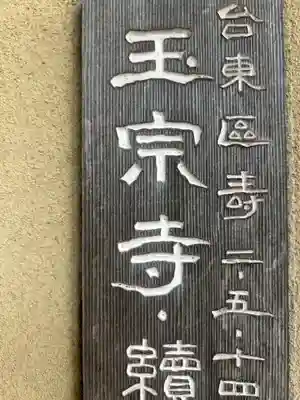 台東區壽二・五・十四
玉宗寺・續